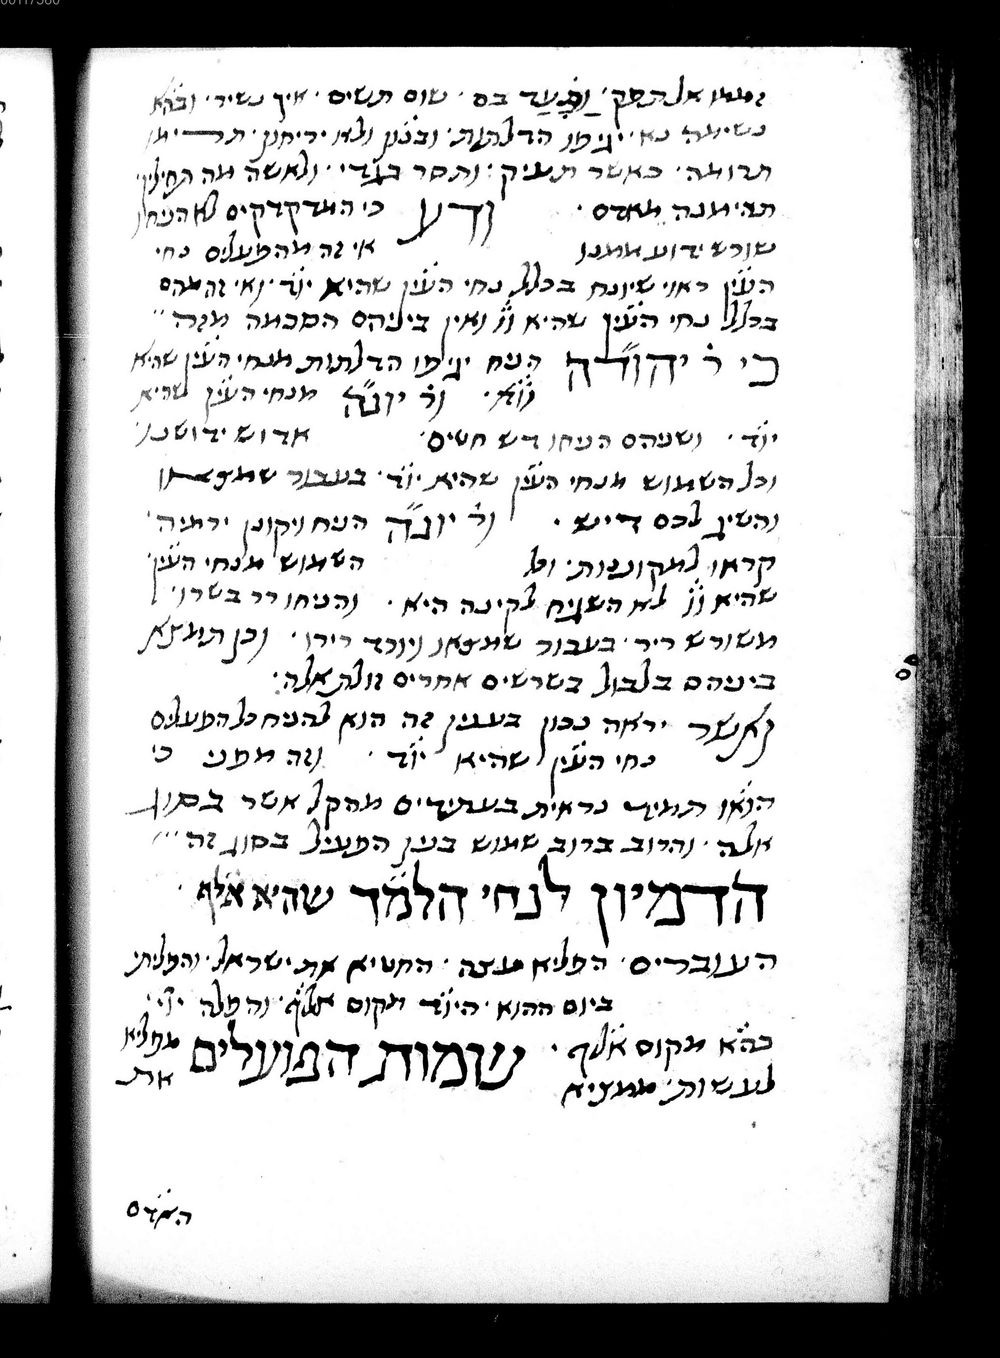 אל תפק· וַתָּעַד בם· שום תשים· איך נשיר· ובהא
נשימה נא· יניפו הדלתות· ובנין ולא יריחון·
תרומה· כאשר תעיק· ותסר בגדי· ולאשה מה תחילין·
תהימנה מאדם· ודע כי המדקדקים לא הניחו
שורש ידוע ממנו אי זה מהפעלים נחי
העי״ן ראוי שיונח בכלל נחי העי״ן שהיא יו״ד· ואי זה מהם
בכלל נחי העי״ן שהיא וו ואין ביניהם הסכמה מזה
כי ר׳ יהודה הניח יניפו הדלתות מנחי העי״ן שהיא
ור׳ יונה מנחי העי״ן שהיא
יו״ד· ושניהם הניחו דש חטים· אדוש ידושנו·
וכל השמוש מנחי העי״ן שהיא יו״ד· בעבור שמצאו
והשיג לכם דיש· ור׳ יונה הניח ויקונן ירמיה·
קראו למקוננות· וכל השמוש מנחי העי״ן·
שהיא וו לא השגיח לקינה היא· והניחו רר בשרו·
משורש ריר· בעבור שמצאו ויורד רירו· וכן תמצא
ביניהם בלבול בשרשים אחרים זולת אלה·
ואשר יראה נכון בענין זה הוא להניח כל הפעלים
נחי העי״ן שהיא יו״ד· וזה מפני כי
תמיד נראית בעתידים מהקל אשר בסוג
אלה· והרוב ברוב שמוש בנין הפעיל בסוג זה
הדמיון לנחי הלמ״ד שהיא אל״ף·
העוברים· הפליא עצה· החטיא את ישראל· והפליתי
ביום ההוא· היו״ד מקום אל״ף· והפלה יי׳·
בה״א מקום אל״ף· שמות הפועלים מפליא
לעשות· ממציא את
האדם